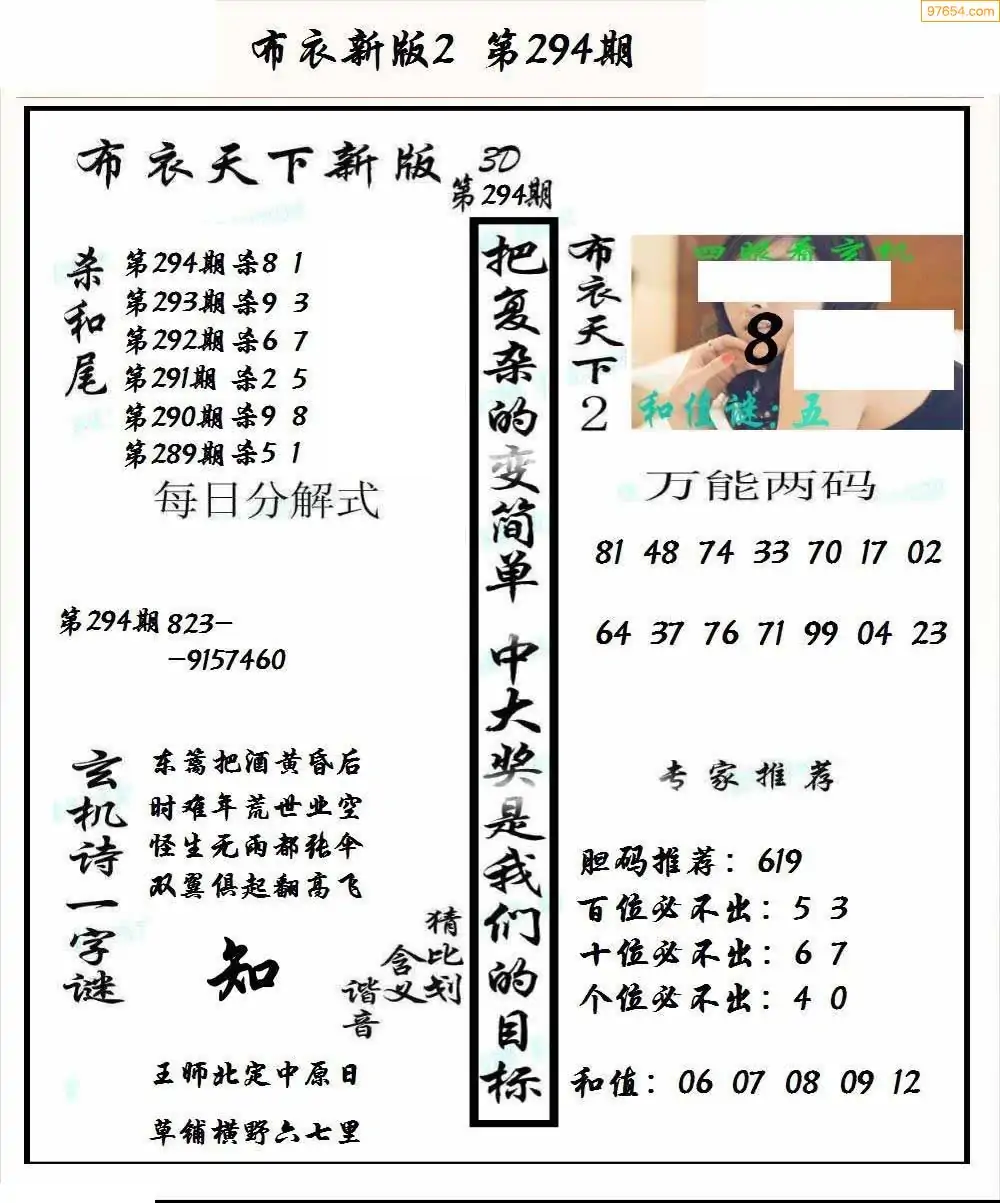 97654.com
布衣新版2 第294期
布衣天下新版
3D
第294期
杀和尾
第294期杀8 1
第293期杀9 3
第292期杀6 7
第291期杀2 5
第290期杀9 8
第289期杀5 1
每日分解式
第294期823-
-9157460
玄机诗一字谜
东篱把酒黄昏后
时难年荒世业空
怪生无雨都张伞
双翼俱起翻高飞
知
猜比划
含义
谐音
王师北定中原日
草铺横野六七里
把复杂的变简单 中大奖是我们的目标
布衣天下2
四眼看玄机
8
和值谜:五
万能两码
81 48 74 33 70 17 02
64 37 76 71 99 04 23
专家推荐
胆码推荐：619
百位必不出：5 3
十位必不出：6 7
个位必不出：4 0
和值：06 07 08 09 12